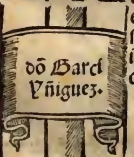 dō Garci
Yñiguez.